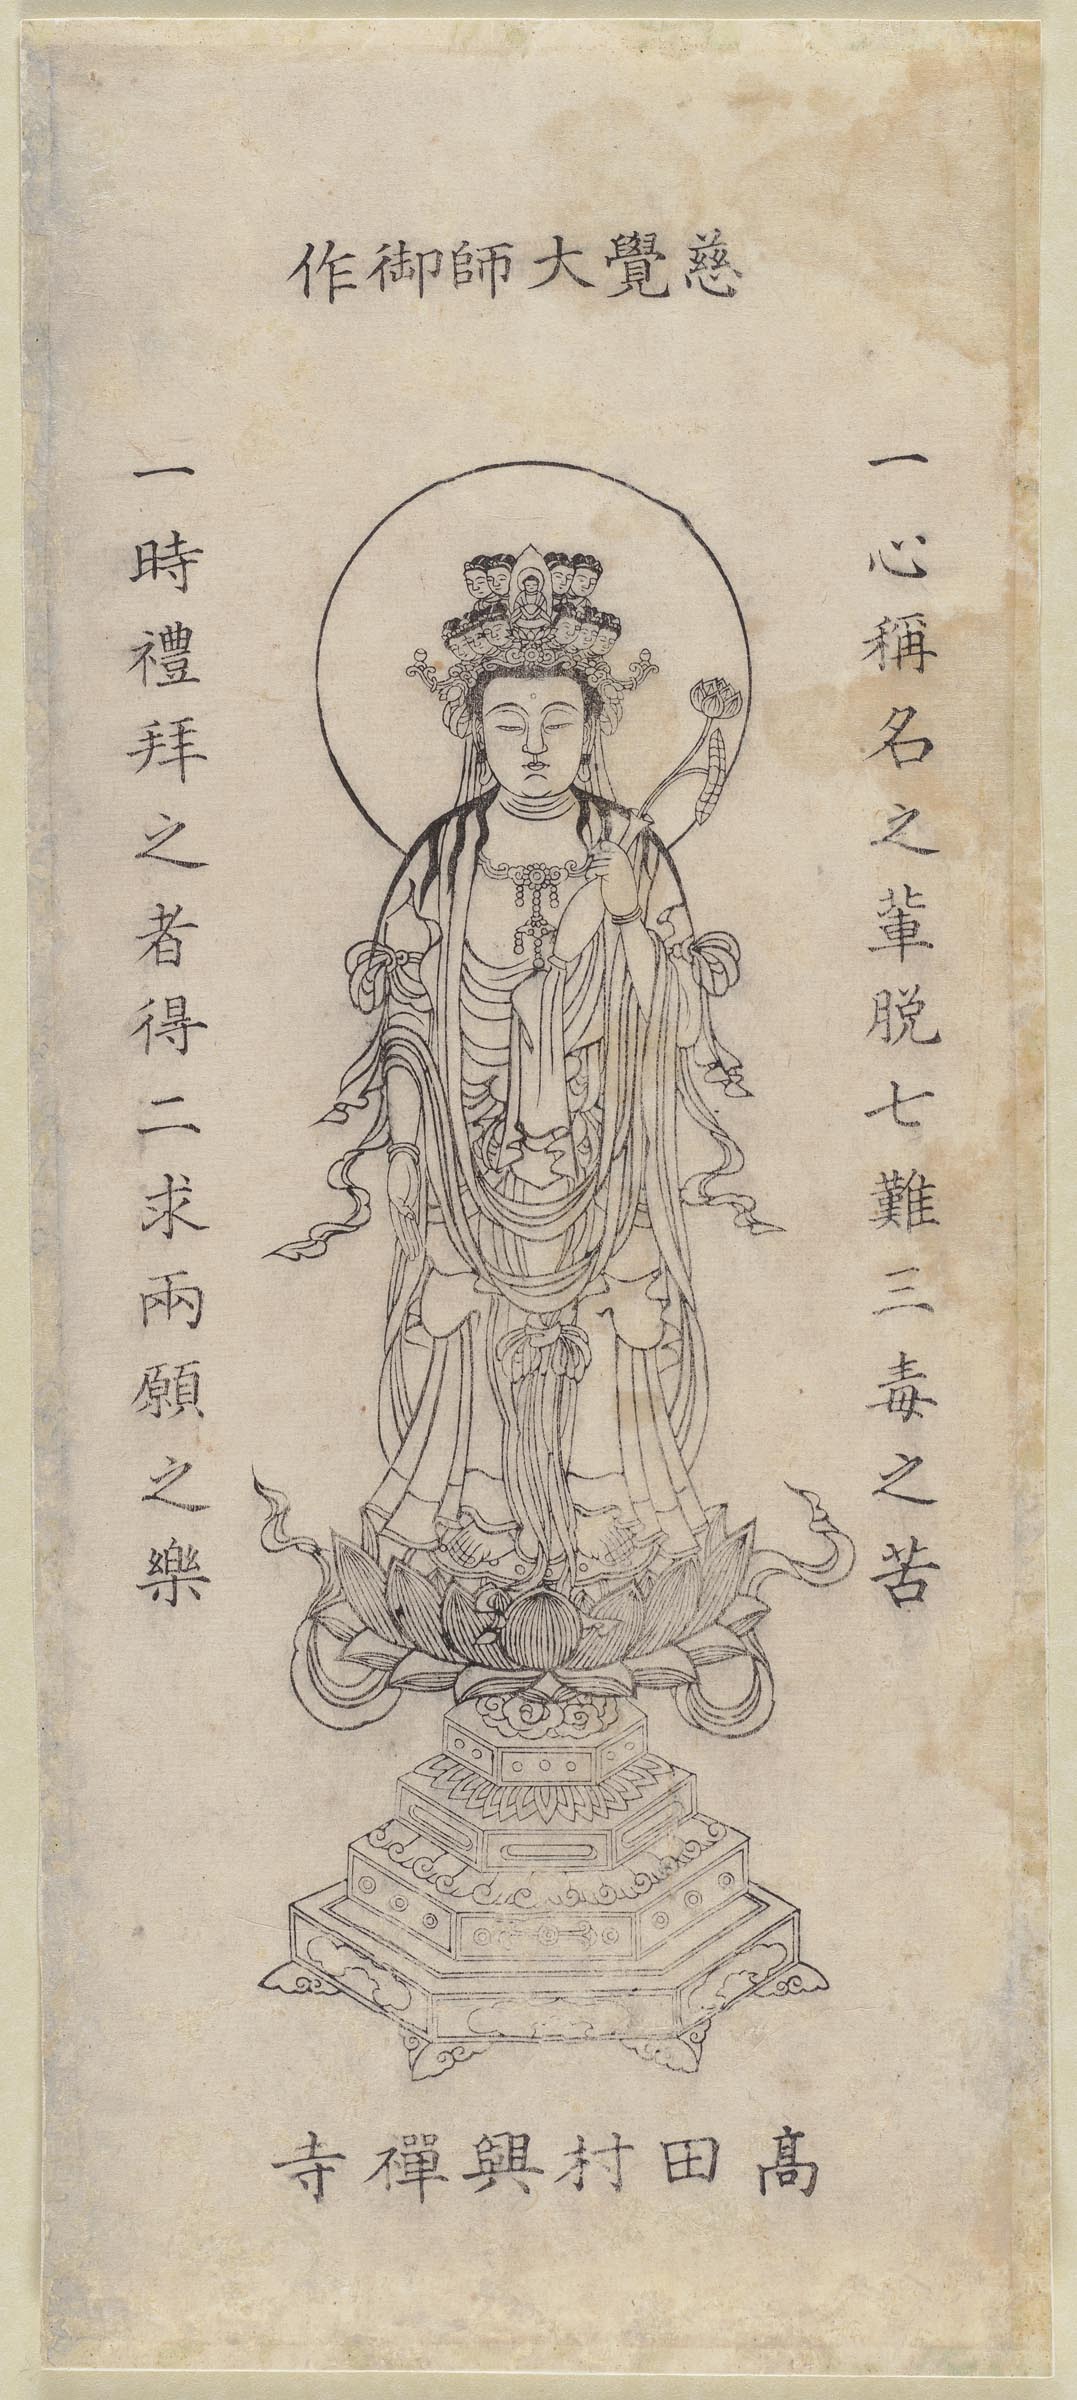 慈覺大師御作
一心稱名之輩脱七難三毒之苦
一時禮拜之者得二求兩願之樂
髙田村興禪寺